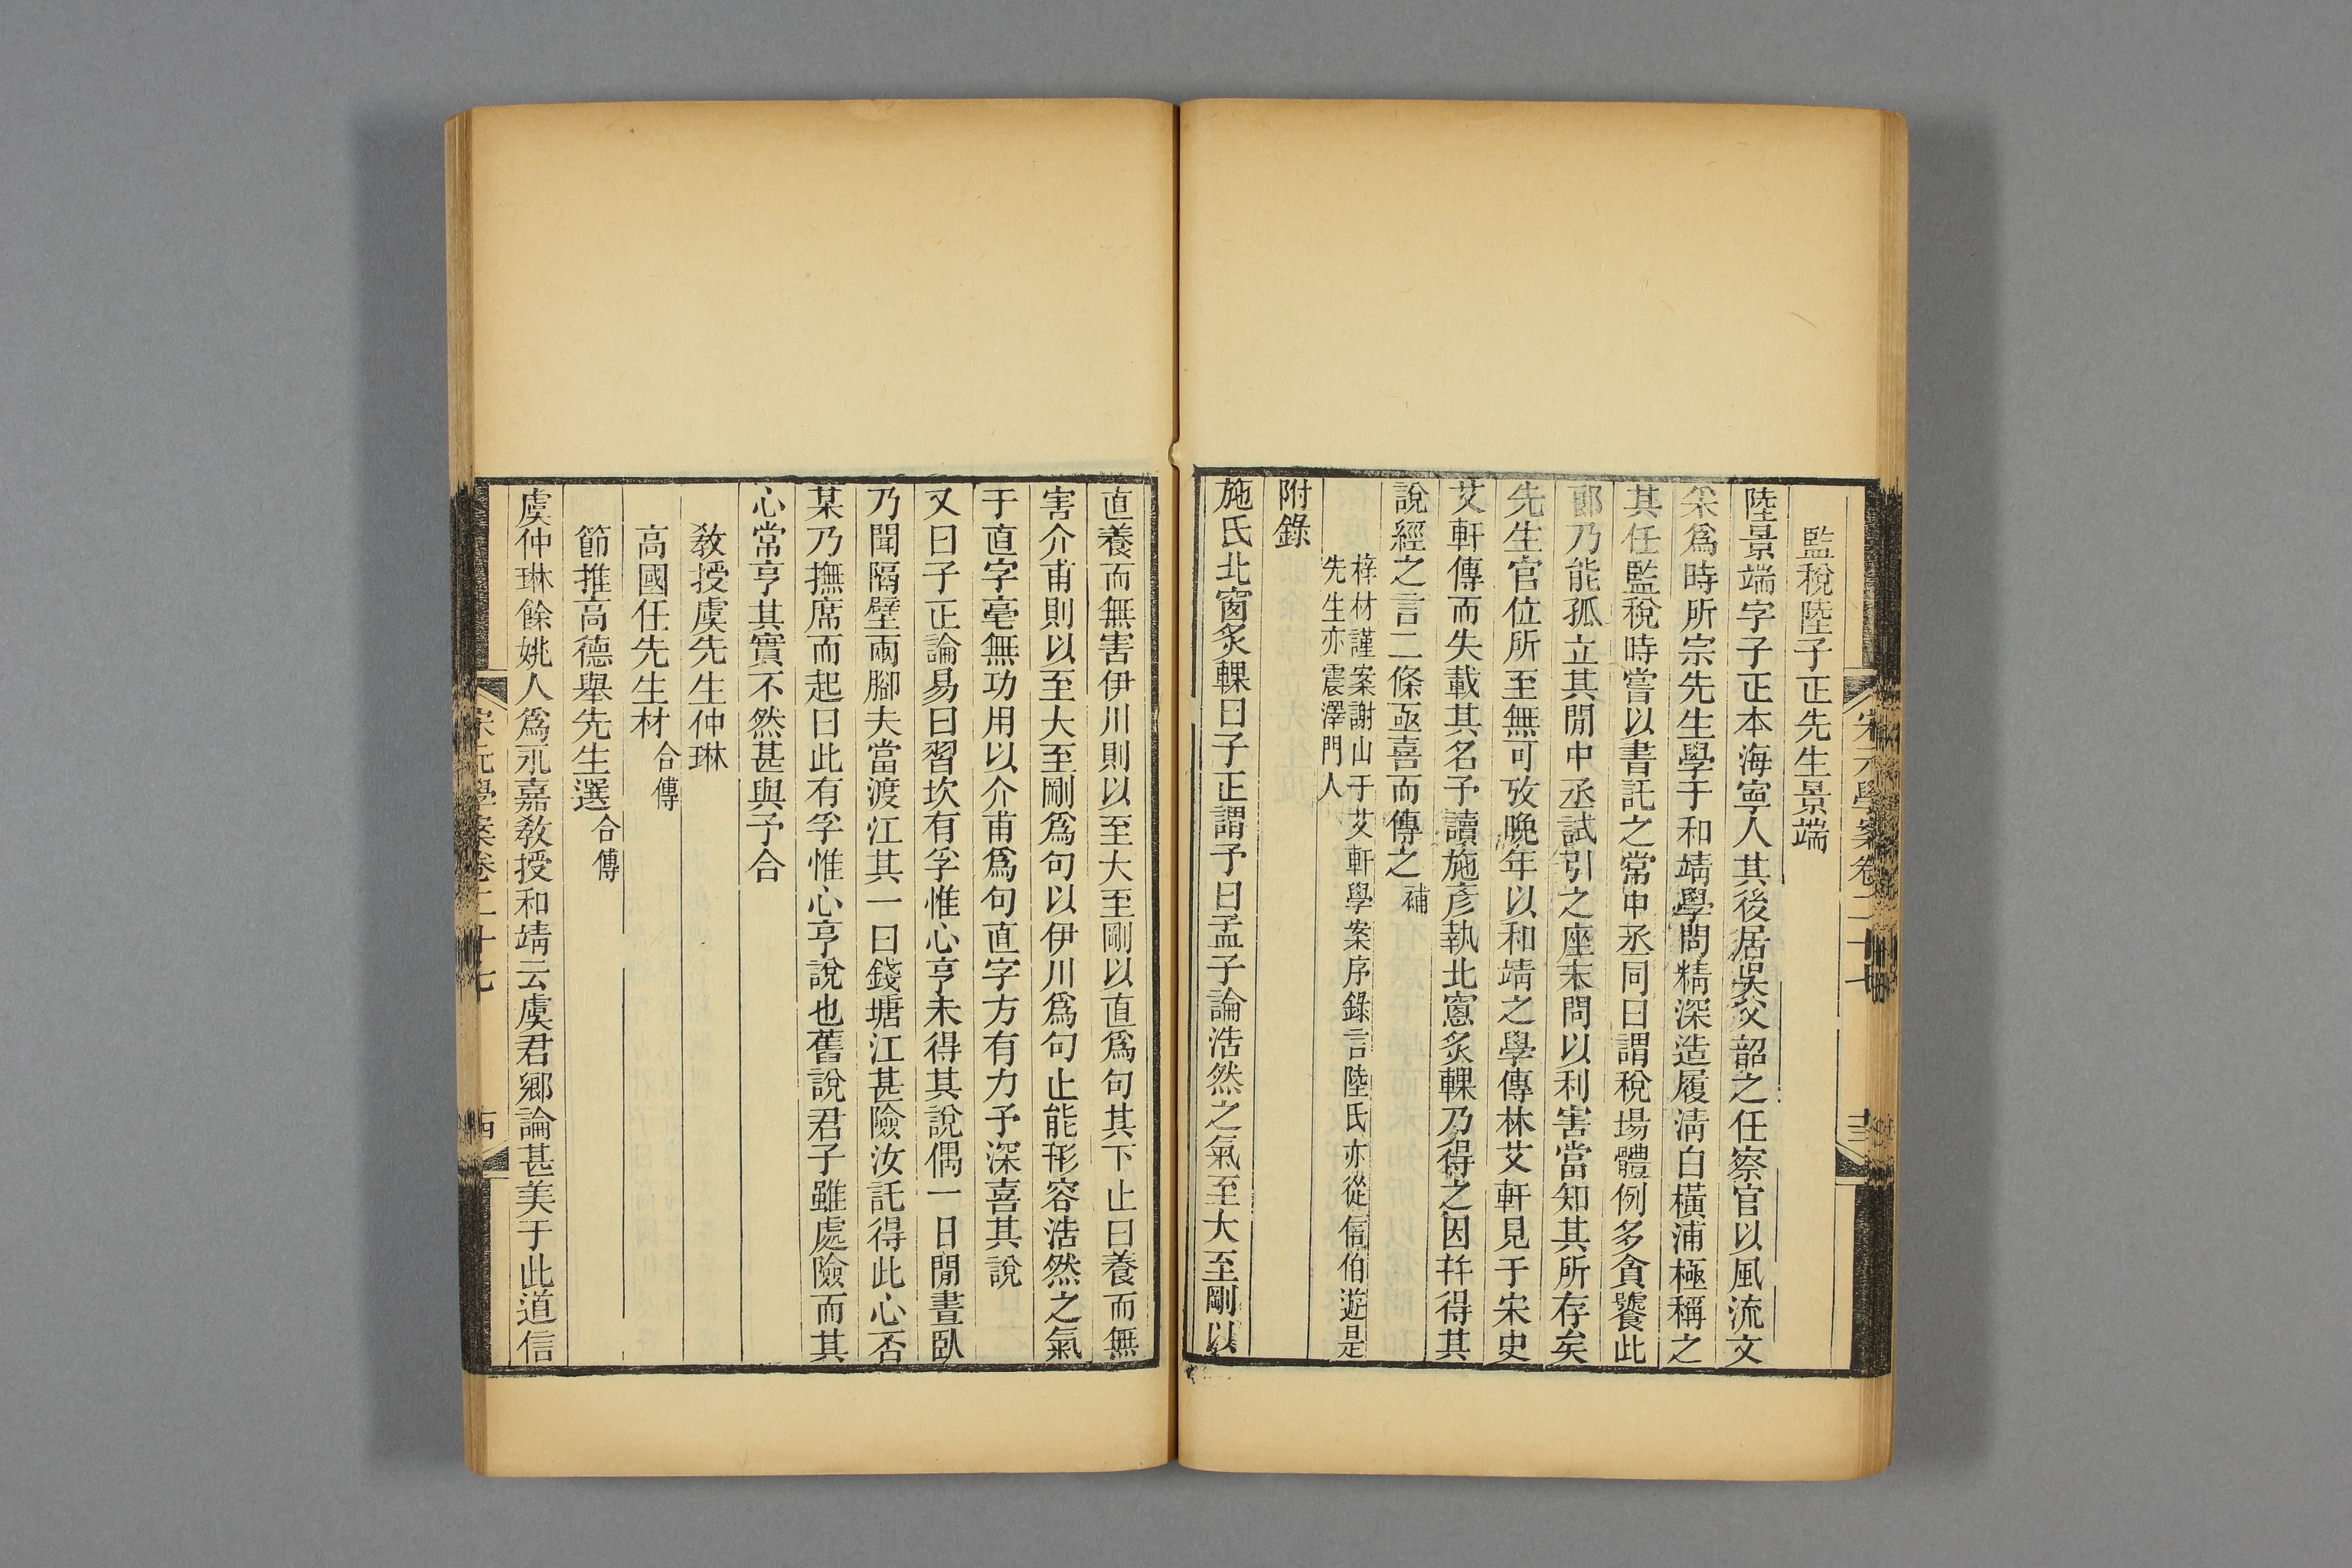 監稅陸子正先生景端
陸景端字子正本海寧人其後居吳父韶之任察官以風流文
采爲時所宗先生學于和靖學問精深造履淸白橫浦極稱之
其任監稅時嘗以書託之常中丞同曰謂稅場體例多貪饕此
郞乃能孤立其閒中丞試引之座末問以利害當知其所存矣
先生官位所至無可攷晚年以和靖之學傳林艾軒見于宋史
艾軒傳而失載其名予讀施彥執北窻炙輠乃得之因幷得其
說經之言二條亟喜而傳之補
梓材謹案謝山于艾軒學案序錄言陸氏亦從信伯遊是
先生亦震澤門人
附錄
施氏北窗炙輠曰子正謂予曰孟子論浩然之氣至大至剛以
宋元學案卷二十七
直養而無害伊川則以至大至剛以直爲句其下止曰養而無
害介甫則以至大至剛爲句以伊川爲句止能形容浩然之氣
于直字毫無功用以介甫爲句直字方有力予深喜其說
又曰子正論易曰習坎有孚惟心亨未得其說偶一日閒晝臥
乃聞隔壁兩腳夫當渡江其一曰錢塘江甚險汝託得此心否
某乃撫席而起曰此有孚惟心亨說也舊說君子雖處險而其
心常亨其實不然甚與予合
敎授虞先生仲琳
高國任先生材合傳
節推高德舉先生選合傳
虞仲琳餘姚人爲永嘉敎授和靖云虞君鄉論甚美于此道信
宋元學案卷二十七